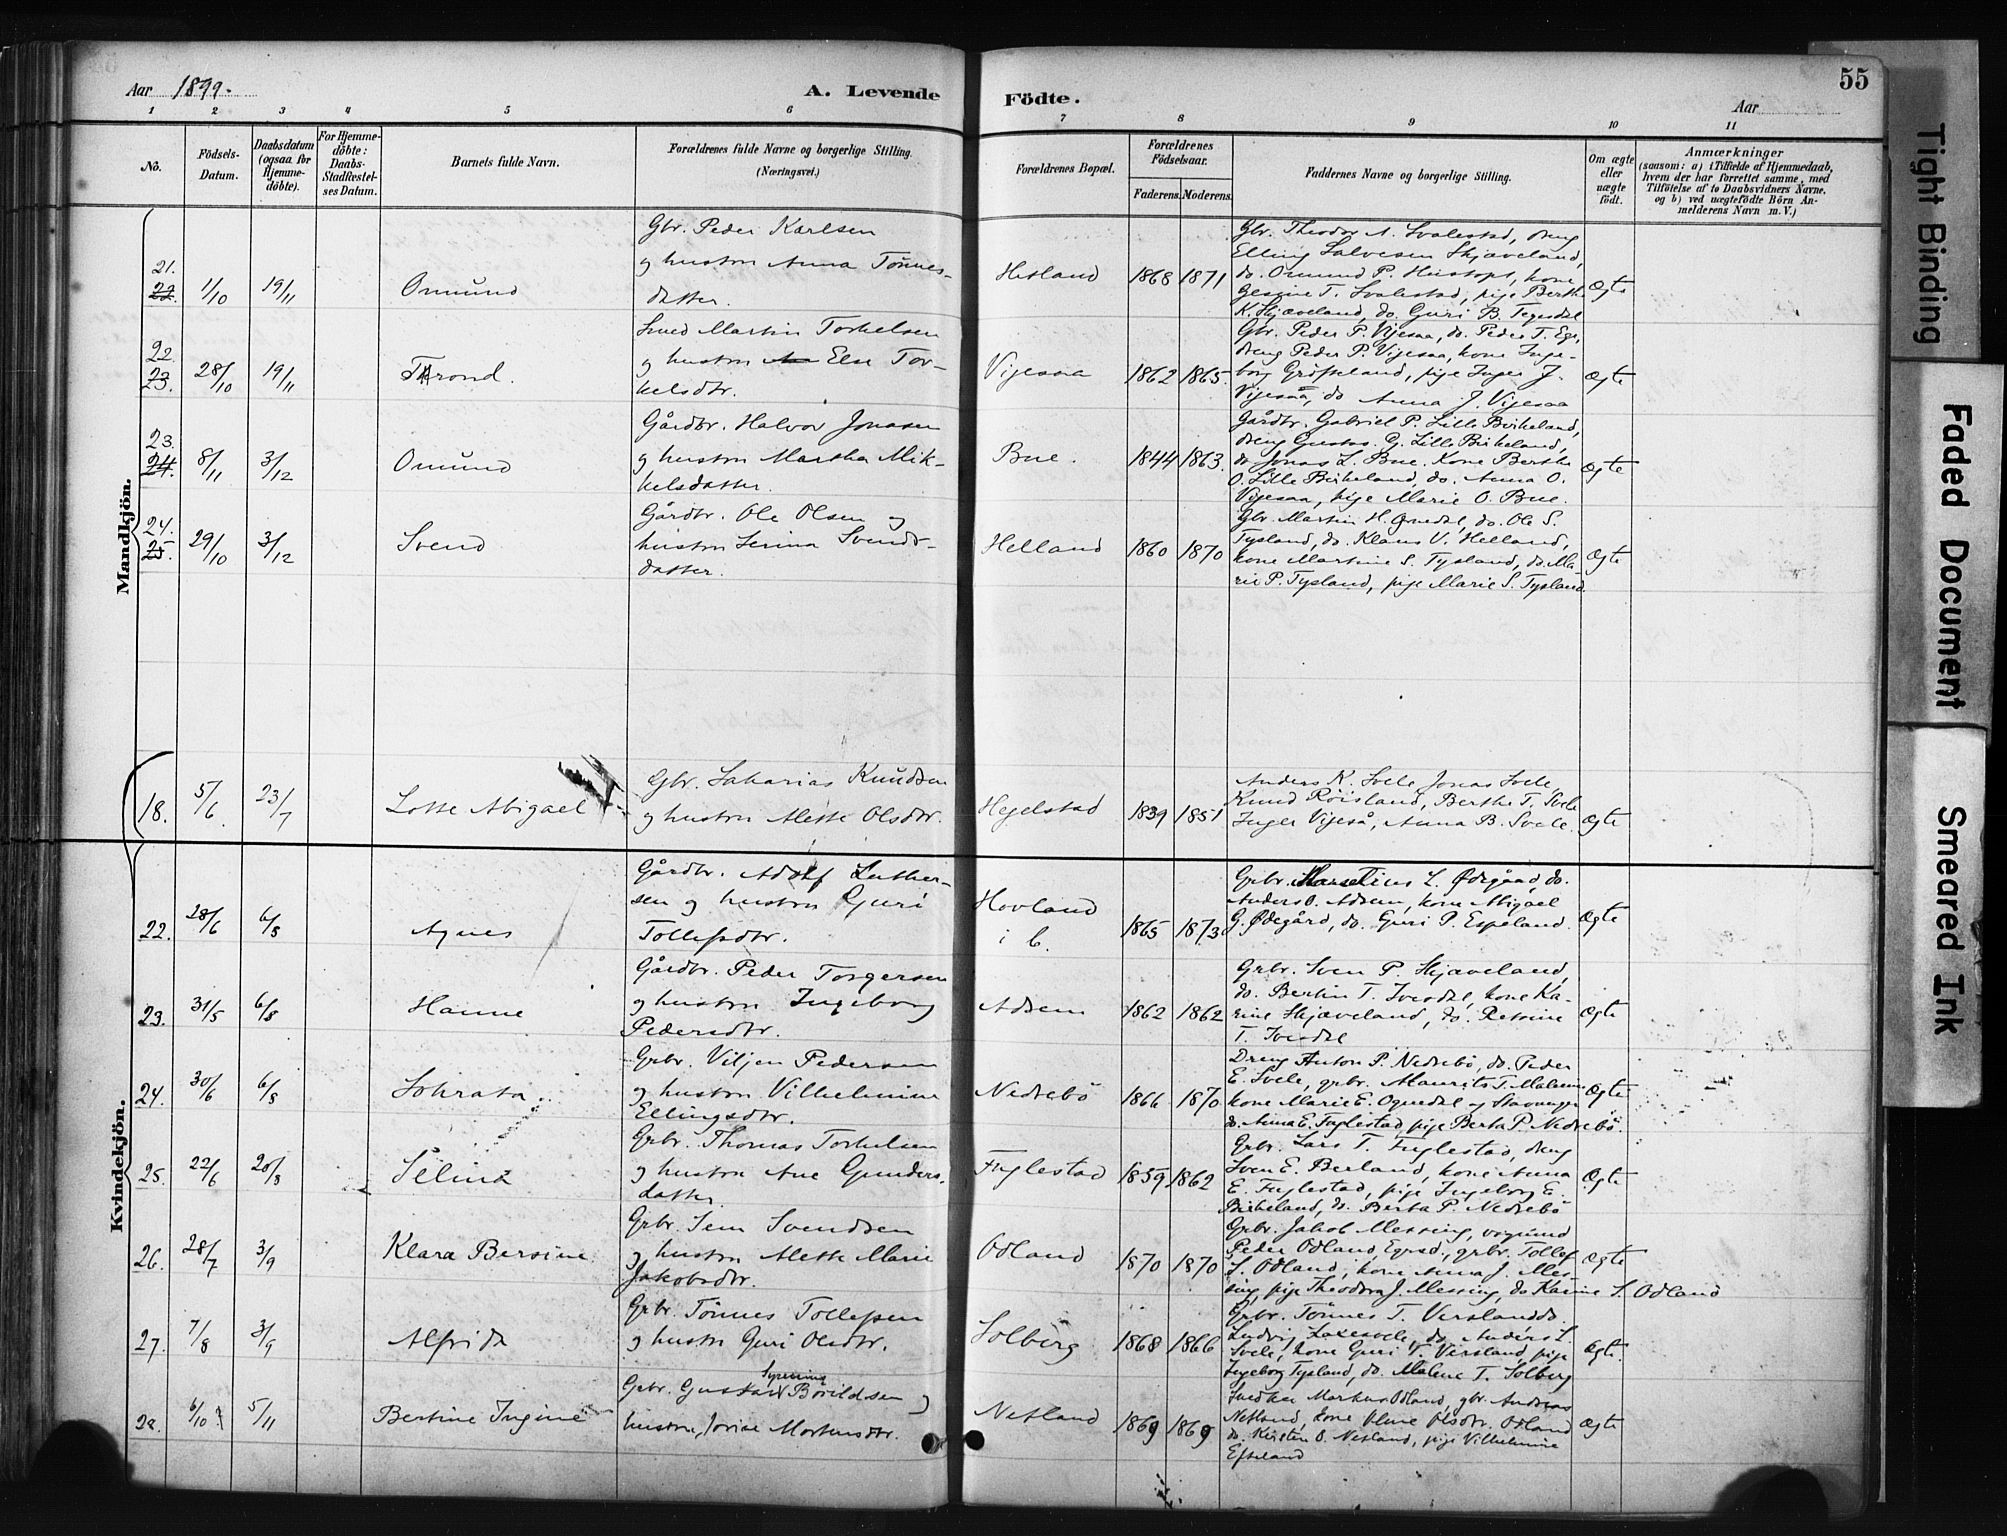 Aar 1899.
A. Levende Födte.
Aar
55
1 2 3 4 5 6 7 8 9 10 11
No.
Födsels-Datum.
Daabsdatum (ogsaa for Hjemme-döbte).
For Hjemme-döbte: Daabs-Stadfæstel-ses Datum.
Barnets fulde Navn.
Forældrenes fulde Navne og borgerlige Stilling. (Næringsvei.)
Forældrenes Bopæl.
Forældrenes Födselsaar.
Faderens. Moderens.
Faddernes Navne og borgerlige Stilling.
Om ægte eller uægte födt.
Anmærkninger
(saasom: a) i Tilfælde af Hjemmedaab, hvem der har forrettet samme, med Tilföielse af to Daabsvidners Navne, og b) ved uægtefödte Börn An-melderens Navn m. V.)
Mandkjön.
21. 22. 1/10 19/11 Omund
Gbr. Peder Karlsen
og hustru Anna Tönnes-
datter.
Hetland 1868 1871
Gbr. Theodor A. Svalestad, dreng
Elling Salvesen Skjæveland,
do. Omund P. Hustoft, kone
Gesine T. Svalestad, pige Berthe
K. Skjæveland, do. Guri B. Tegsdal
Ægte
22. 23. 28/10 19/11 Thrond.
Smed Martin Torkelsen
og hustru Else Tor-
kelsdtr.
Vigesaa 1862 1865.
Gbr. Peder P. Vigesaa, do. Peder T. Ege,
dreng Peder P. Vigesaa, kone Inge-
borg Gröfseland, pige Inger J.
Vigesaa, do Anna J. Vigesaa
Ægte
23. 24. 8/11 3/12 Omund
Gårdbr. Halvor Jonasen
og hustru Martha Mik-
kelsdatter.
Bue. 1844 1863.
Gårdbr. Gabriel P. Lille Birkeland,
dreng Gustav G. Lille Birkeland,
do Jonas L. Bue. Kone Berthe
O. Lille Birkeland, do. Anna O.
Vigesaa, pige Marie O. Bue.
Ægte
24. 25. 29/10 3/12 Svend
Gårdbr. Ole Olsen og
hustru Serina Svends-
datter.
Helland 1860 1870
Gbr. Martin H. Ognedal, do. Ole S.
Tysland, do. Klaus V. Helland,
kone Martine S. Tysland, do. Ma-
rie P. Tysland, pige Marie S. Tysland.
Ægte
Kvindekjön.
18. 5/6 23/7 Lotte Abigael
Gbr. Sakarias Knudsen
og hustru Alette Olsdtr.
Hegelstad 1839 1851
Anders K. Svele Jonas Svele
Knud Röisland, Berthe T. Svele
Inger Vigeså, Anna B. Svele.
Ægte
22. 28/6 6/8 Agnes
Gårdbr. Adolf Luther-
sen og hustru Guri
Tollefsdtr.
Hovland
i b.
1865 1873
Grbr. Marselius L. Ødegård, do.
Anders O. Adsem, kone Abigael
G. Ødegård, do. Guri P. Espeland.
Ægte
23. 31/5 6/8 Hanne
Gårdbr. Peder Torgersen
og hustru Ingeborg
Pedersdtr.
Adsem 1862 1862
Grbr. Sven P. Skjæveland,
do. Bertin T. Ivesdal, kone Ka-
rine Skjæveland, do. Petrine
T. Ivesdal
Ægte
24. 30/6 6/8 Sokrata.
Grbr. Viljen Pedersen
og hustru Vilhelmine
Ellingsdtr.
Nedrebö 1866 1870
Dreng Anton P. Nedrebö, do. Peder
E. Svele, grbr. Maurits T. Malmin
kone Marie E. Ognedal og Stavanger
do. Anna E. Fuglestad pige Berta P. Nedrebö.
Ægte
25. 22/6 20/8 Selina
Grbr. Thomas Torkelsen
og hustru Ane Gunders-
datter
Fuglestad 1859 1862
Grbr. Lars T. Fuglestad, dreng
Sven E. Berland, kone Anna
E. Fuglestad, pige Ingeborg E.
Birkeland, do. Berta P. Nedrebö
Ægte
26. 28/7 3/9 Klara Bersine
Grbr. Sem Svendsen
og hustru Alette Marie
Jakobsdtr.
Odland 1870 1870
Grbr. Jakob Messing,
Peder Odland, Egrsd., grbr. Tollef
S. Odland, kone Anna J. Mes-
sing, pige Theodora J. Messing, do Karine S. Odland
Ægte
27. 7/8 3/9 Alfrida
Grbr. Tönnes Tollefsen
og hustru Guri Olsdtr.
Solberg 1868 1866
Grbr. Tönnes T. Versland do.
Ludvig Laxesvele, do. Anders L.
Svele, kone Guri T. Versland, pige
Ingeborg Tysland, do. Malene T. Solberg
Ægte.
28. 6/10 5/11 Bertine Ingine
Grbr. Gustav Syvening Bövildsen og
hustru Jorine Mortensdtr.
Netland 1869 1869
Snedker Markus Odland, gbr. Andreas
Netland, kone Oline Olsdtr. Odland
do. Kirsten O. Netland, pige Vilhelmine
Efteland
Ægte
Tight Binding
Faded Document
Smeared Ink